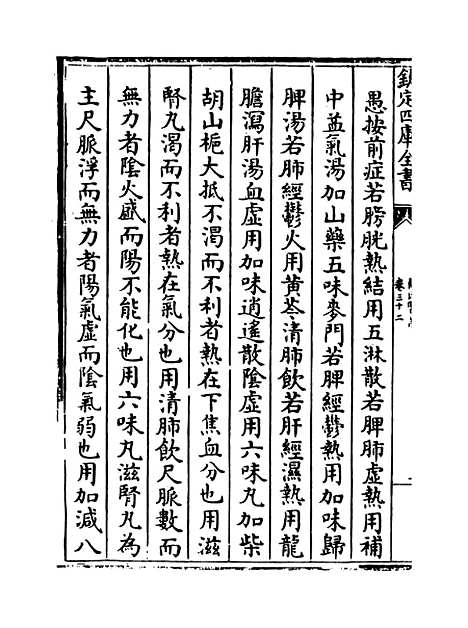 欽定四庫全書
卷三十二
愚按前症若膀胱熱結用五淋散若脾肺虛熱用補
中益氣湯加山藥五味麥門若脾經鬱熱用加味歸
脾湯若肺經鬱火用黄芩清肺飲若肝經濕熱用龍
膽瀉肝湯血虛用加味逍遙散陰虛用六味丸加柴
胡山梔大抵不渴而不利者熱在下焦血分也用滋
腎丸渴而不利者熱在氣分也用清肺飲尺脈數而
無力者陰火盛而陽不能化也用六味丸滋腎丸為
主尺脈浮而無力者陽氣虛而陰氣弱也用加減八